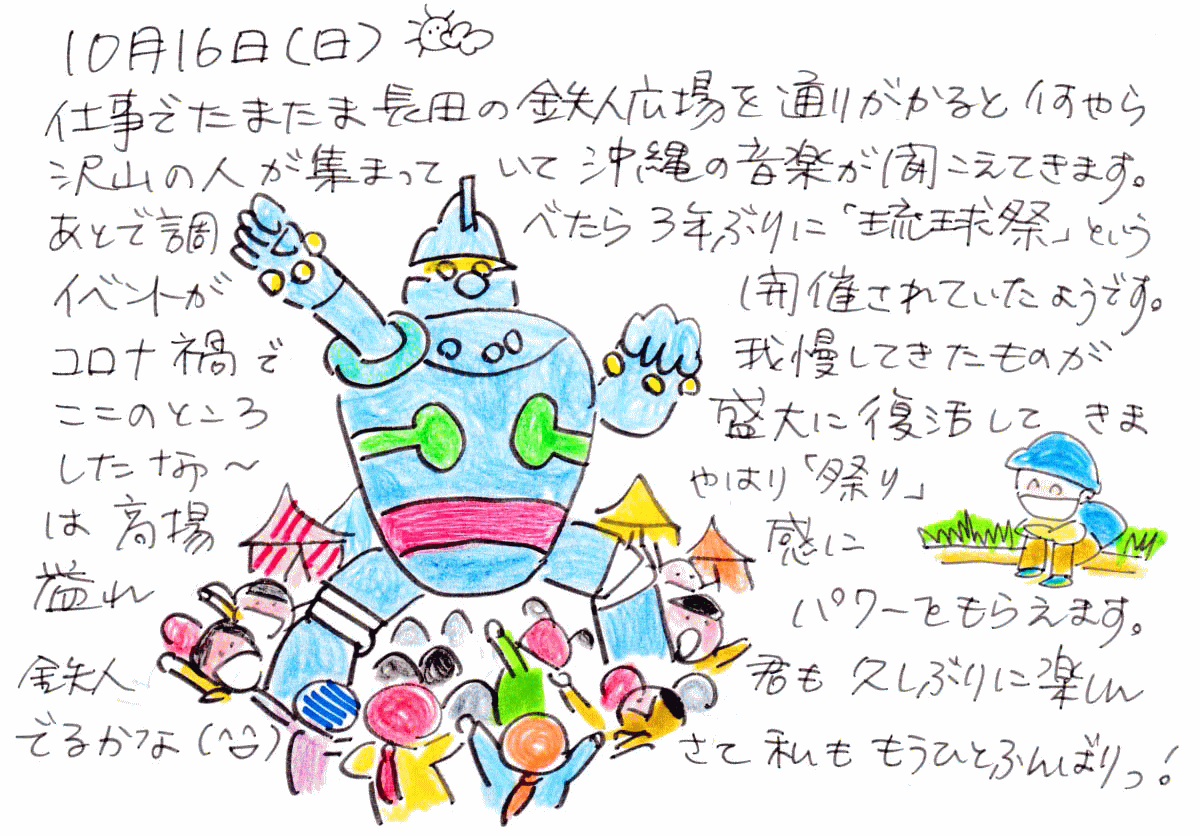 10月16日(日)
仕事でたまたま長田の鉄人広場を通りがかると何やら
沢山の人が集まって いて沖縄の音楽が聞こえてきます。
あとで調 べたら3年ぶりに「琉球祭」という
イベントが 開催されていたようです。
コロナ禍で 我慢してきたものが
ここのところ 盛大に復活して きま
したなぁ〜 やはり「祭り」
は高揚 感に
溢れ パワーをもらえます。
鉄人 君も久しぶりに楽しん
でるかな(^^) さて私も もうひとふんばりっ!